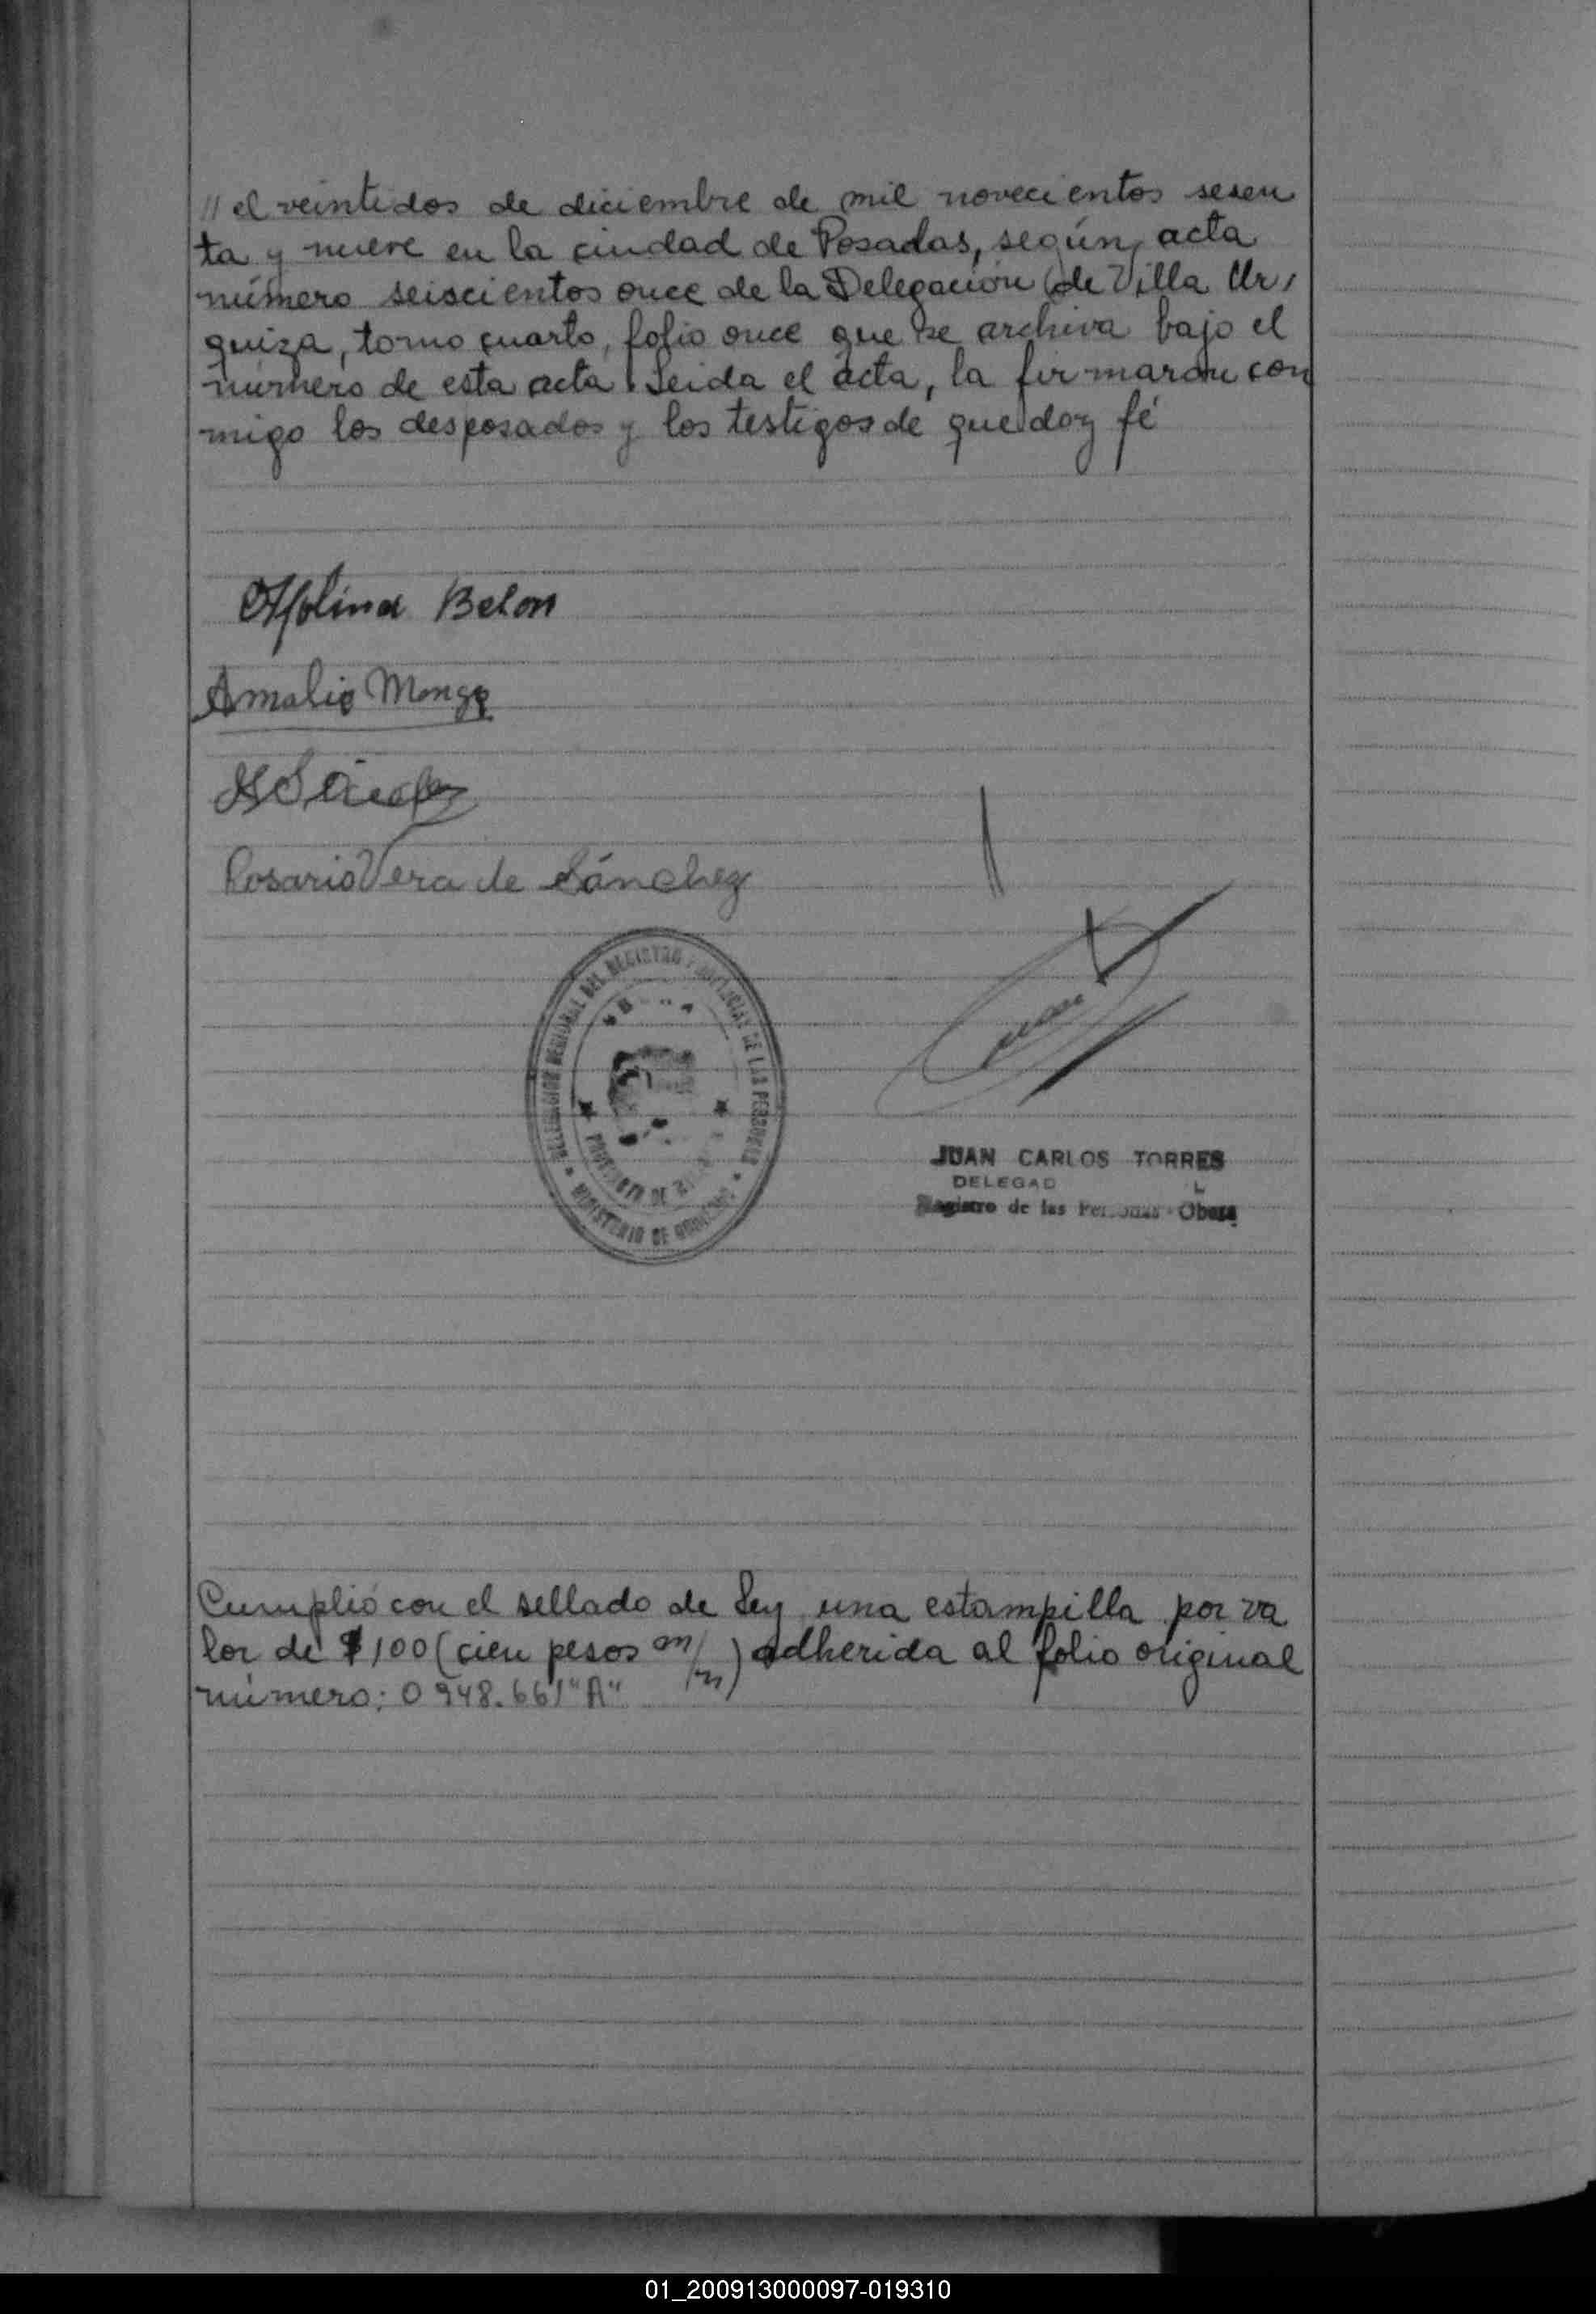 // el veintidos de diciembre de mil novecientos sesen
ta y nueve en la ciudad de Posadas, según, acta
número seiscientos once de la Delegación de Villa Ur,
quiza, tomo cuarto, folio once que se archiva bajo el
número de esta acta. Leida el acta, la firmaron con
migo los desposados y los testigos de que doy fé
Molina Belon
Amalia Monge
Rosario Vera de Sánchez
DELEGACION REGIONAL DEL REGISTRO PROVINCIAL DE LAS PERSONAS
PROVINCIA DE
MINISTERIO DE GOBIERNO
JUAN CARLOS TORRES
DELEGAD
Registro de las Personas - Obera
Cumplió con el sellado de Ley una estampilla por va
lor de $100 (cien pesos m/n) adherida al folio original
número: 0948.661 "A"
01_200913000097-019310